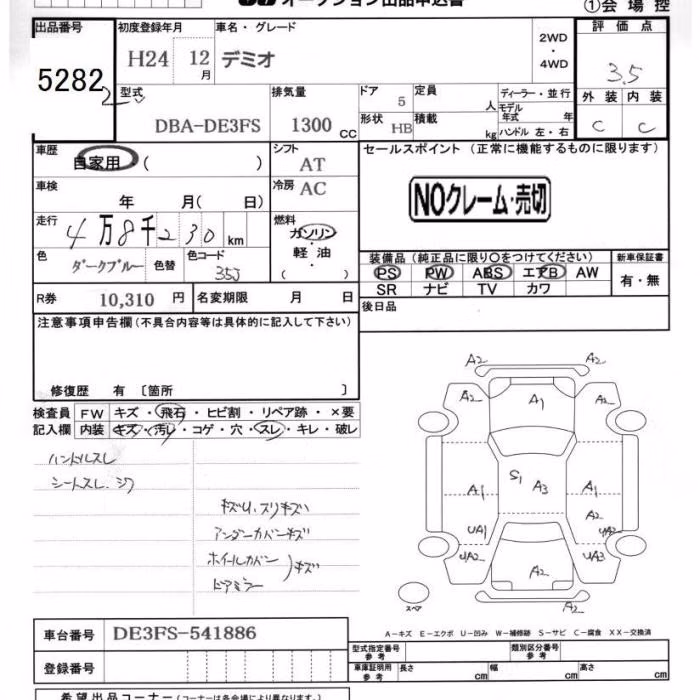 オークション出品申込書
①会場控
出品番号
初度登録年月
車名・グレード
2WD
・
4WD
評価点
5282
H24 12月
デミオ
3.5
型式
DBA-DE3FS
排気量
1300 CC
ドア
5
定員
人
ディーラー・並行
外装 内装
形状
HB
積載
kg
モデル年式 年
ハンドル 左・右
C C
車歴
自家用 ( )
シフト
AT
セールスポイント (正常に機能するものに限ります)
車検
年 月( 日)
冷房
AC
NOクレーム・売切
走行
4万8千230km
燃料
ガソリン
・
軽油
・
( )
色
ダークブルー
色替
色コード
35J
装備品 (純正品に限り○をつけてください)
新車保証書
PS PW ABS エアB AW
SR ナビ TV カワ
有・無
R券
10,310 円
名変期限
月 日
後日品
注意事項申告欄 (不具合内容等は具体的に記入して下さい)
修復歴 有 〔箇所 〕
検査員
記入欄
FW キズ・飛石・ヒビ割・リペア跡・×要
内装 キズ・汚レ・コゲ・穴・スレ・キレ・破レ
ハンドルスレ
シートスレ.シワ
キズU.スリキズ
アンダーカバーキズ
ホイールカバー
ドアミラー
)キズ
A2 A2
A2 A1 A2
S1 A3
A1 A1
A2
UA1 UA2
UA2 UA3
A2
A2
スペア
A-キズ E-エクボ U-凹み W-補修跡 S-サビ C-腐食 XX-交換済
車台番号
DE3FS-541886
登録番号
型式指定番号
参考
類別区分番号
参考
車庫証明用
参考
長さ cm
幅 cm
高さ cm
希望出品コーナー (コーナーは各会場により異なります)